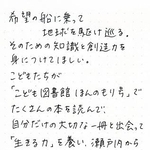 希望の船に乗って
地球を駆け巡る。
そのための知識と創造力を
身につけてほしい。
こどもたちが
「こども図書館 ほんのもり号」で
たくさんの本を読んで、
自分だけの大切な一冊と出会って
「生きる力」を養い、瀬戸内から